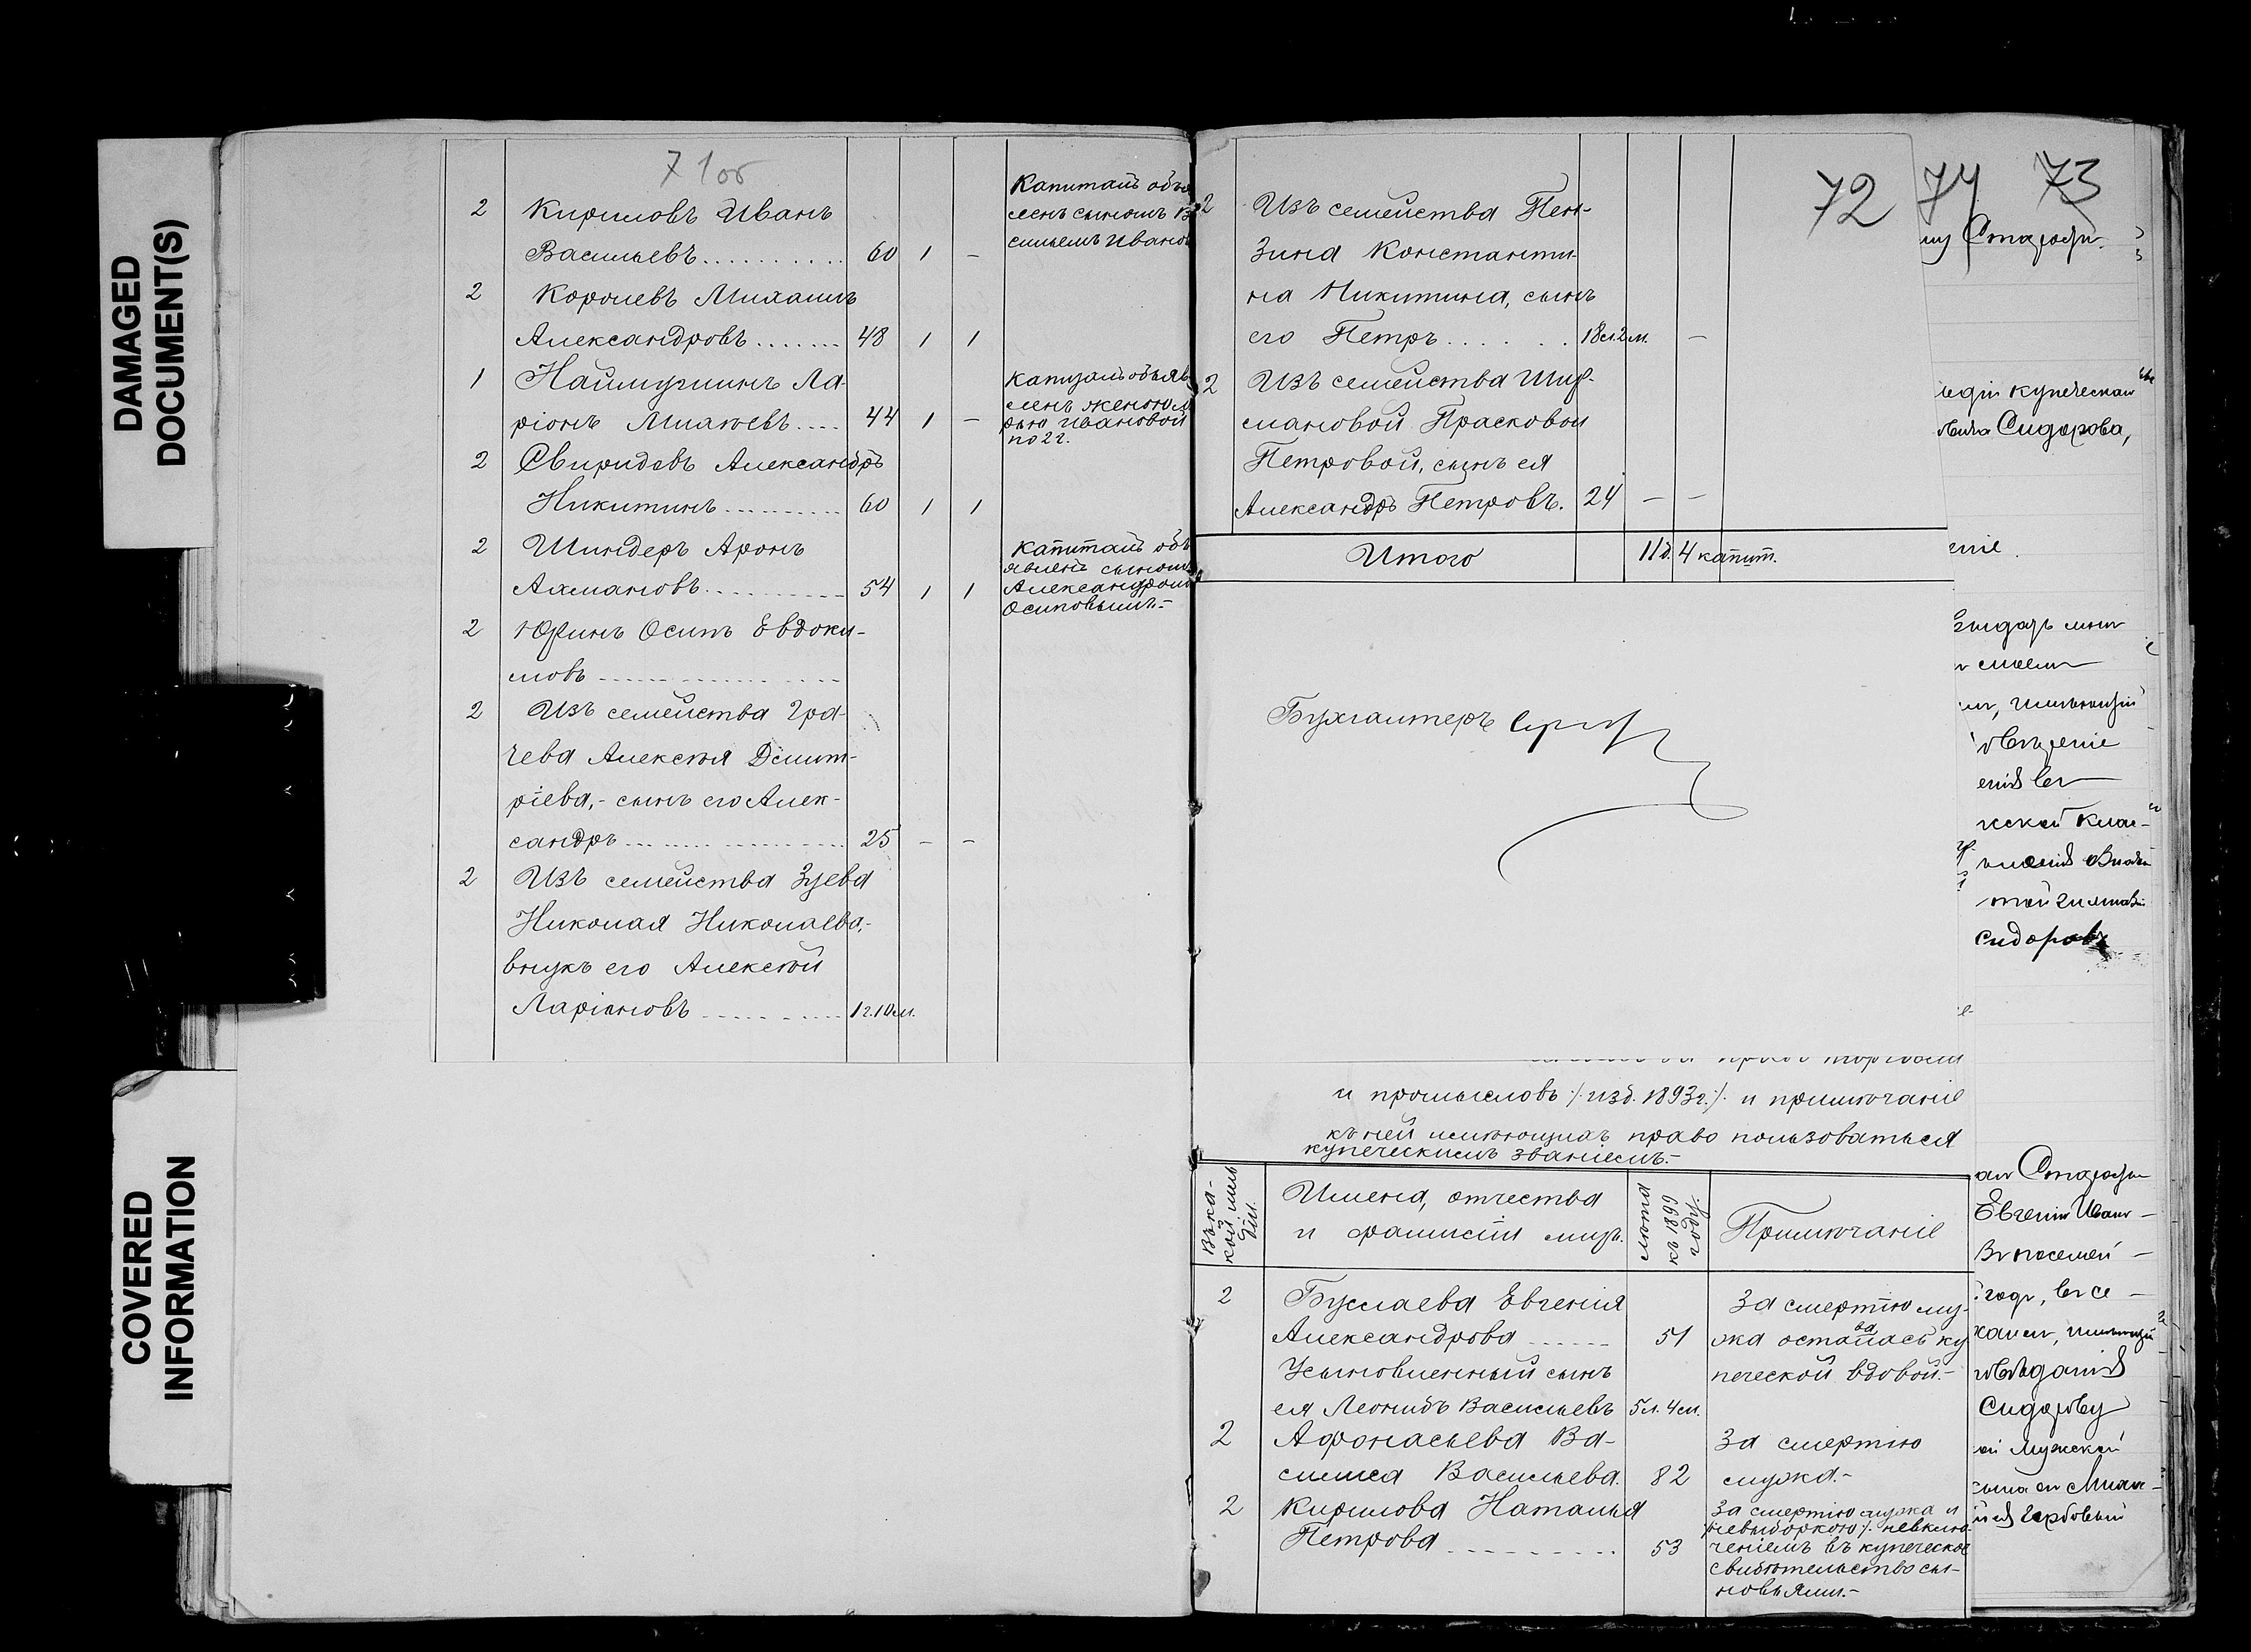 DAMAGED
DOCUMENT(S)
COVERED
INFORMATION
71об
2 Кириловъ Иванъ
Васильевъ.......... 60 1 –
Капиталъ объя
ленъ сыномъ Ва
сильемъ Иванов
2 Королевъ Михаилъ
Александровъ....... 48 1 1
1 Наймушинъ Ла-
ріонъ Михѣевъ.... 44 1 –
Капиталъ объяв
ленъ женою
Ивановой
по 2 г.
2 Свиридовъ Александръ
Никитинъ.......... 60 1 1
2 Шиндеръ Аронъ
Ахмановъ.......... 54 1 1
Капиталъ объ
явленъ сыномъ
Александромъ
Осиповымъ.–
2 Юринъ Осипъ Евдоки-
мовъ
2 Изъ семейства Гра-
чева Алексѣя Дмит-
ріева,- сынъ его Алек-
сандръ 25 – –
2 Изъ семейства Зуева
Николая Николаева,-
внукъ его Алексѣй
Ларіоновъ 1г.10м.
72 74 73
2 Изъ семейства Пен-
зина Константи-
на Никитина, сынъ
его Петръ 18л.2м. –
2 Изъ семейства Шу-
мановой Прасковьи
Петровой, сынъ ея
Александръ Петровъ. 24 – –
Итого 11д. 4 капит.
Бухгалтеръ
и промысловъ /изд. 1893г./ и примѣчаніе
къ ней имѣющихъ право пользоваться
купеческимъ званіемъ.–
Въ ка-
кой
гил.
Имена, отчества
и фамиліи лицъ.
Лѣта
къ 1899
году.
Примѣчаніе
2 Буслаева Евгенія
Александрова 51
Усыновленный сынъ
ея Леонидъ Васильевъ 5л.4м.
За смертію му-
жа осталась ку
печеской вдовой.–
2 Афонасьева Ва-
силиса Васильева. 82
За смертію
мужа.–
2 Кирилова Наталья
Петрова 53
За смертію мужа и
невыборкою /. невклю-
ченіемъ въ купеческое
свидѣтельство сы-
новьями.–
купеческая
Сидорова,
Сидоровъ
Евгенія Иван-
Сидорову
мужской
гербовый